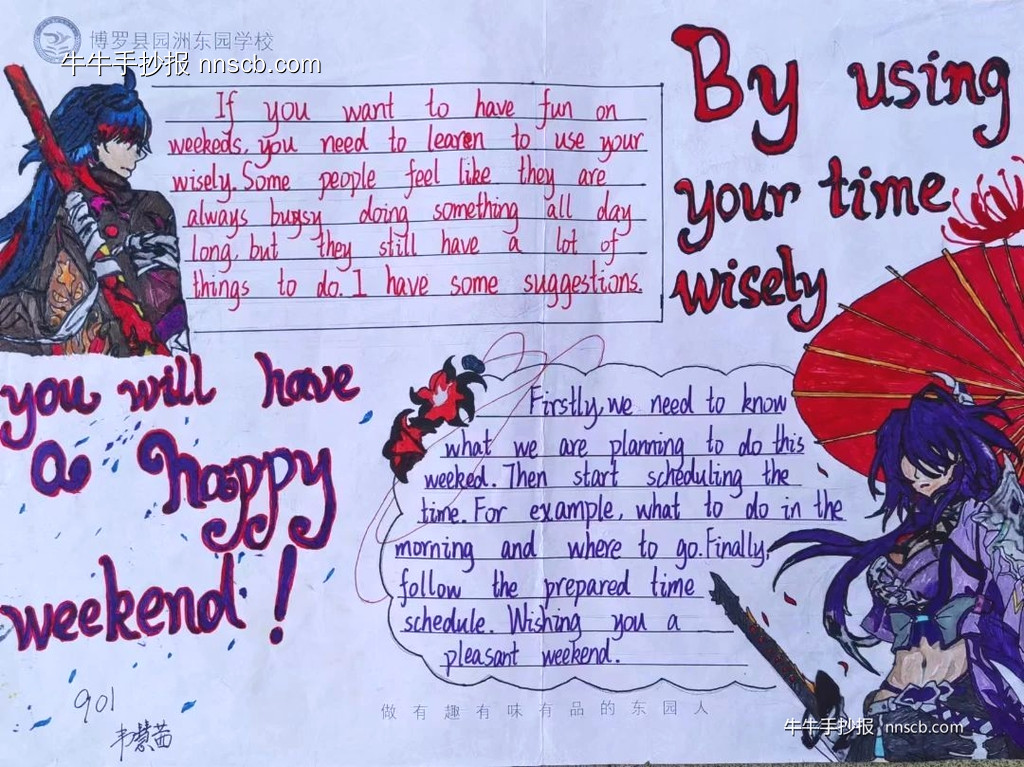 博罗县园洲东园学校
牛牛手抄报 nnscb.com
If you want to have fun on
weekeds, you need to learen to use your
wisely. Some people feel like they are
always bugsy doing something all day
long, but they still have a lot of
things to do. I have some suggestions.
By using
your time
wisely
you will have
a happy
weekend!
Firstly, we need to know
what we are planning to do this
weeked. Then start scheduling the
time. For example, what to do in the
morning and where to go. Finally,
follow the prepared time
schedule. Wishing you a
pleasant weekend.
901
韦慧茜
做有趣有味有品的东园人
牛牛手抄报 nnscb.com